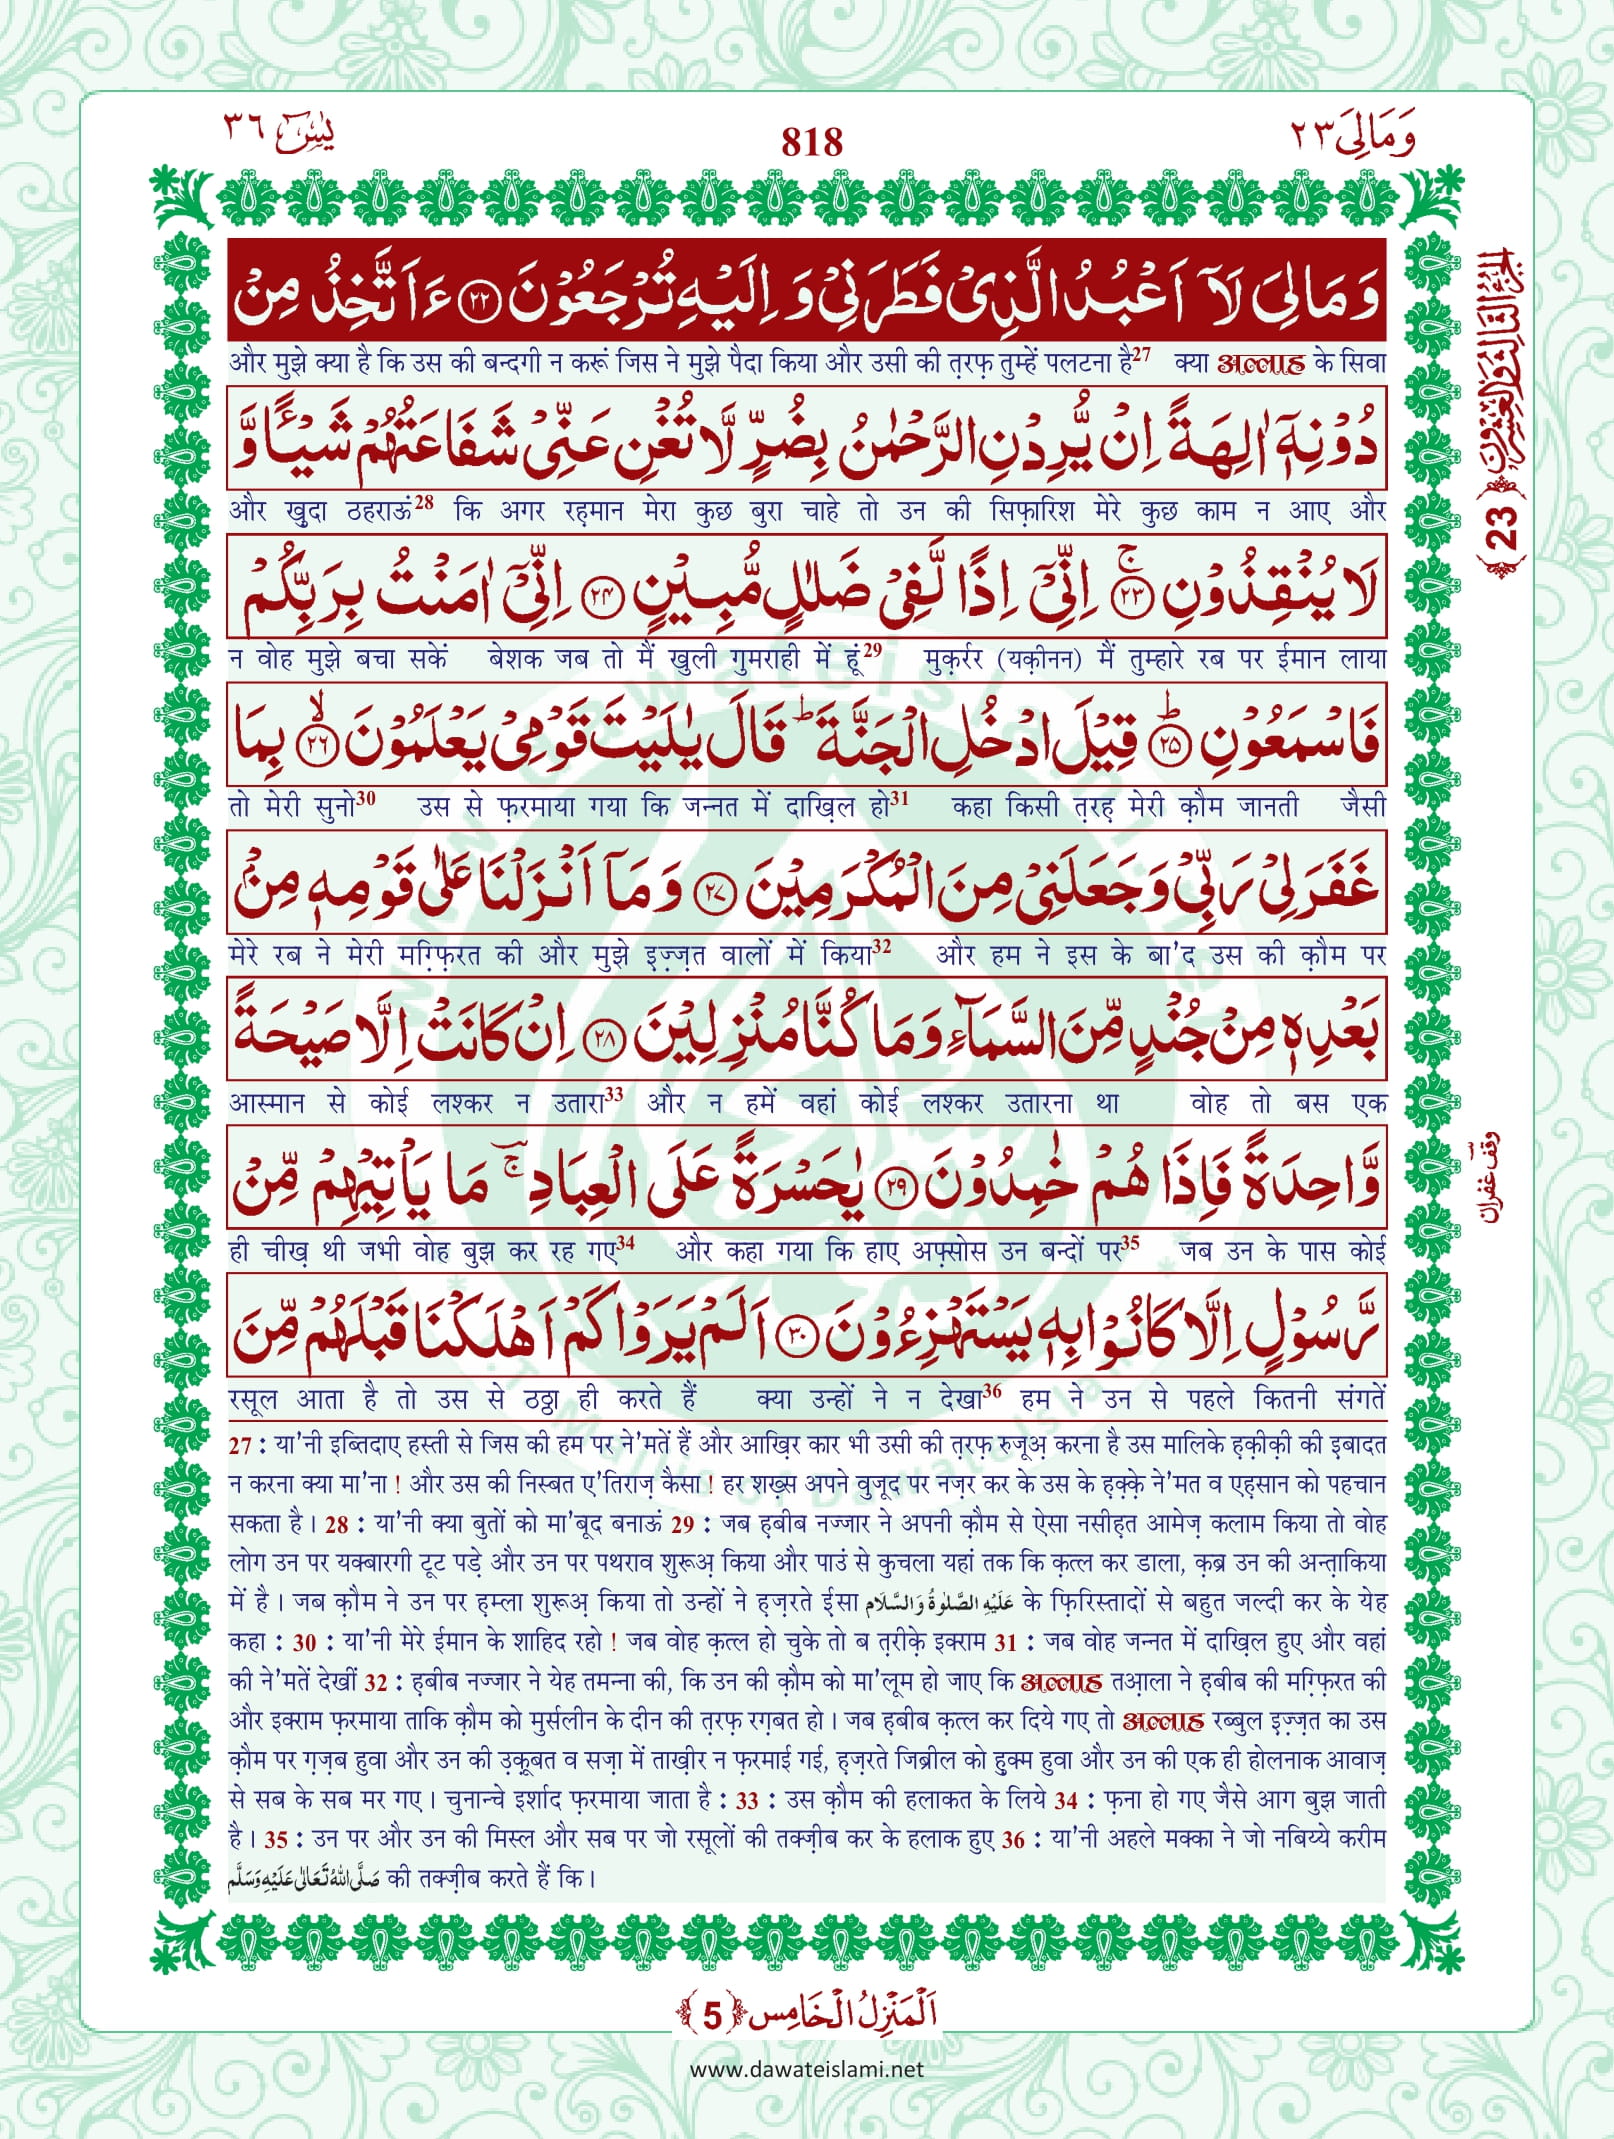 وَمَالِیَ ٢٣
818
یٰسٓ ٣٦
وَمَالِیَ لَاۤ اَعْبُدُ الَّذِیْ فَطَرَنِیْ وَ اِلَیْهِ تُرْجَعُوْنَ ﴿۲۲﴾ ءَاَتَّخِذُ مِنْ
और मुझे क्या है कि उस की बन्दगी न करूं जिस ने मुझे पैदा किया और उसी की त़रफ़ तुम्हें पलटना है27 क्या अल्लाह के सिवा
دُوْنِهٖۤ اٰلِهَةً اِنْ یُّرِدْنِ الرَّحْمٰنُ بِضُرٍّ لَّا تُغْنِ عَنِّیْ شَفَاعَتُهُمْ شَیْـًٔا وَّ
और खु़दा ठहराऊं28 कि अगर रह़मान मेरा कुछ बुरा चाहे तो उन की सिफ़ारिश मेरे कुछ काम न आए और
لَا یُنْقِذُوْنِ ﴿۲۳﴾ۚ اِنِّیْۤ اِذًا لَّفِیْ ضَلٰلٍ مُّبِیْنٍ ﴿۲۴﴾ اِنِّیْۤ اٰمَنْتُ بِرَبِّكُمْ
न वोह मुझे बचा सकें बेशक जब तो मैं खुली गुमराही में हूं29 मुक़र्रर (यक़ीनन) मैं तुम्हारे रब पर ईमान लाया
فَاسْمَعُوْنِ ﴿۲۵﴾ؕ قِیْلَ ادْخُلِ الْجَنَّةَ ؕ قَالَ یٰلَیْتَ قَوْمِیْ یَعْلَمُوْنَ ﴿۲۶﴾ۙ بِمَا
तो मेरी सुनो30 उस से फ़रमाया गया कि जन्नत में दाख़िल हो31 कहा किसी त़रह़ मेरी क़ौम जानती जैसी
غَفَرَ لِیْ رَبِّیْ وَ جَعَلَنِیْ مِنَ الْمُكْرَمِیْنَ ﴿۲۷﴾ وَ مَاۤ اَنْزَلْنَا عَلٰى قَوْمِهٖ مِنْۢ
मेरे रब ने मेरी मग़्फ़िरत की और मुझे इ़ज़्ज़त वालों में किया32 और हम ने इस के बा'द उस की क़ौम पर
بَعْدِهٖ مِنْ جُنْدٍ مِّنَ السَّمَآءِ وَ مَا كُنَّا مُنْزِلِیْنَ ﴿۲۸﴾ اِنْ كَانَتْ اِلَّا صَیْحَةً
आस्मान से कोई लश्कर न उतारा33 और न हमें वहां कोई लश्कर उतारना था वोह तो बस एक
وَّاحِدَةً فَاِذَا هُمْ خٰمِدُوْنَ ﴿۲۹﴾ یٰحَسْرَةً عَلَى الْعِبَادِ ۚؔ مَا یَاْتِیْهِمْ مِّنْ
ही चीख़ थी जभी वोह बुझ कर रह गए34 और कहा गया कि हाए अफ़्सोस उन बन्दों पर35 जब उन के पास कोई
رَّسُوْلٍ اِلَّا كَانُوْا بِهٖ یَسْتَهْزِءُوْنَ ﴿۳۰﴾ اَلَمْ یَرَوْا كَمْ اَهْلَكْنَا قَبْلَهُمْ مِّنَ
रसूल आता है तो उस से ठठ्ठा ही करते हैं क्या उन्हों ने न देखा36 हम ने उन से पहले कितनी संगतें
27 : या'नी इब्तिदाए हस्ती से जिस की हम पर ने'मतें हैं और आख़िर कार भी उसी की त़रफ़ रुजूअ़ करना है उस मालिके ह़क़ीक़ी की इ़बादत
न करना क्या मा'ना ! और उस की निस्बत ए'तिराज़ कैसा ! हर शख़्स अपने वुजूद पर नज़र कर के उस के ह़क़्क़े ने'मत व एह़सान को पहचान
सकता है। 28 : या'नी क्या बुतों को मा'बूद बनाऊं 29 : जब ह़बीब नज्जार ने अपनी क़ौम से ऐसा नसीह़त आमेज़ कलाम किया तो वोह
लोग उन पर यक्बारगी टूट पड़े और उन पर पथराव शुरूअ़ किया और पाउं से कुचला यहां तक कि क़त्ल कर डाला, क़ब्र उन की अन्त़ाकिया
में है। जब क़ौम ने उन पर ह़म्ला शुरूअ़ किया तो उन्हों ने ह़ज़रते ई़सा عَلَيْهِ الصَّلٰوةُ وَالسَّلَام के फ़िरिस्तादों से बहुत जल्दी कर के येह
कहा : 30 : या'नी मेरे ईमान के शाहिद रहो ! जब वोह क़त्ल हो चुके तो ब त़रीक़े इक्राम 31 : जब वोह जन्नत में दाख़िल हुए और वहां
की ने'मतें देखीं 32 : ह़बीब नज्जार ने येह तमन्ना की, कि उन की क़ौम को मा'लूम हो जाए कि अल्लाह तआ़ला ने ह़बीब की मग़्फ़िरत की
और इक्राम फ़रमाया ताकि क़ौम को मुर्सलीन के दीन की त़रफ़ रग़बत हो। जब ह़बीब क़त्ल कर दिये गए तो अल्लाह रब्बुल इ़ज़्ज़त का उस
क़ौम पर ग़ज़ब हुवा और उन की उ़क़ूबत व सज़ा में ताख़ीर न फ़रमाई गई, ह़ज़रते जिब्रील को हु़क्म हुवा और उन की एक ही होलनाक आवाज़
से सब के सब मर गए। चुनान्चे इर्शाद फ़रमाया जाता है : 33 : उस क़ौम की हलाकत के लिये 34 : फ़ना हो गए जैसे आग बुझ जाती
है। 35 : उन पर और उन की मिस्ल और सब पर जो रसूलों की तक्ज़ीब कर के हलाक हुए 36 : या'नी अहले मक्का ने जो नबिय्ये करीम
صَلَّى اللّٰهُ تَعَالٰى عَلَيْهِ وَسَلَّم की तक्ज़ीब करते हैं कि।
الجزء الثالث والعشرون ﴿23﴾
وقف غفران
اَلْمَنْزِلُ الْخَامِس ﴿5﴾
www.dawateislami.net